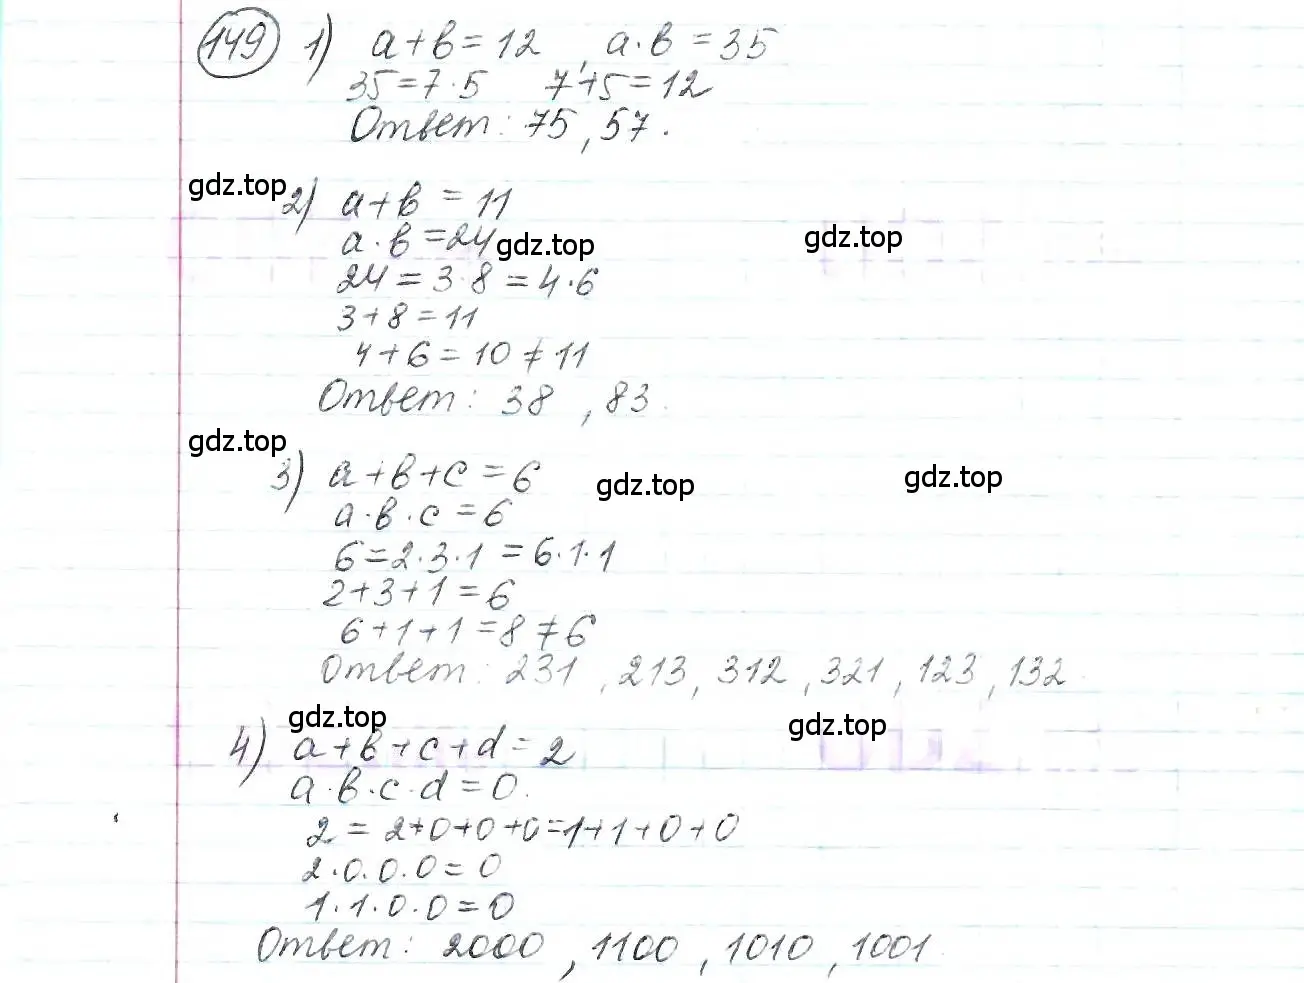 149 1) a+b=12, a·b=35
35=7·5 7+5=12
Ответ: 75, 57.
gdz.top
2) a+b=11
a·b=24
gdz.top
gdz.top
24=3·8=4·6
3+8=11
4+6=10≠11
Ответ: 38, 83.
gdz.top
3) a+b+c=6
gdz.top
gdz.top
a·b·c=6
6=2·3·1=6·1·1
2+3+1=6
6+1+1=8≠6
Ответ: 231, 213, 312, 321, 123, 132.
gdz.top
gdz.top
4) a+b+c+d=2
a·b·c·d=0.
2=2+0+0+0=1+1+0+0
2·0.0.0=0
1·1·0·0=0
Ответ: 2000, 1100, 1010, 1001.